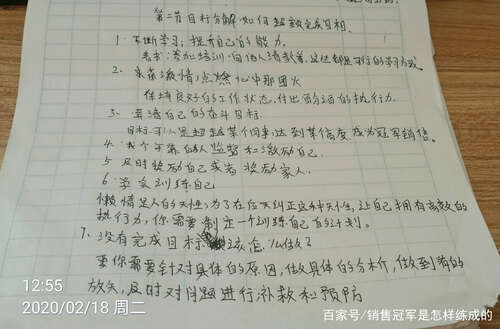 第二节 目标分解：如何超额完成目标。
1. 不断学习，提升自己的能力。
看书，参加培训，向他人请教等，这些都是可行的学习方式
2. 来点激情，点燃心中那团火
保持良好的工作状态，付出百分百的执行力。
3. 弄清自己的奋斗目标。
目标可以是超越某个同事达到某信度成为冠军销售。
4. 找个可靠的人监督和激励自己。
5 及时奖励自己或者奖励家人。
6. 坚实训练自己
懒惰是人的天性，为了在后天纠正这种天性，让自己拥有高效的
执行力，你需要制定一个训练自己的计划。
7. 没有完成目标该怎么做？
要你需要针对具体的原因，做具体的分析，做到有的
放矢，及时对问题进行补救和预防
12:55
2020/02/18 周二
百家号/销售冠军是怎样练成的